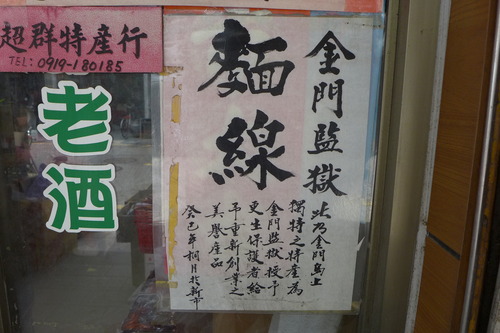 超群特產行
TEL: 0919-180185
老酒
金門監獄
麵線
此乃金門島上
獨特之特產為
金門監獄授予
更生保護者給
予重新創業之
美譽產品
癸巳年桐月於新市